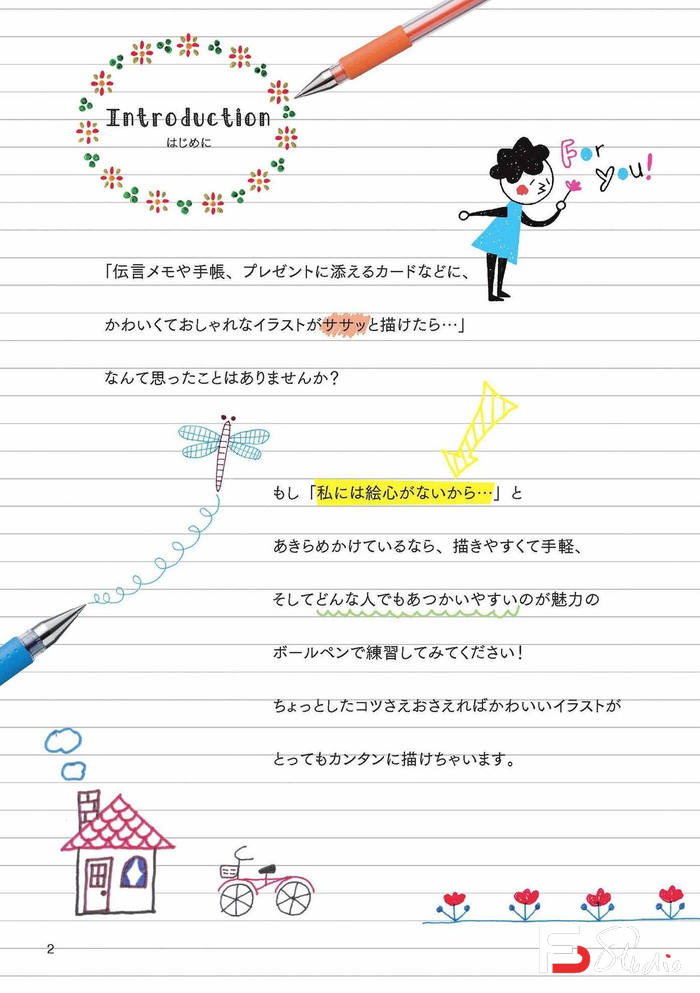 Introduction
はじめに
For
you!
「伝言メモや手帳、プレゼントに添えるカードなどに、
かわいくておしゃれなイラストがササッと描けたら…」
なんて思ったことはありませんか?
もし「私には絵心がないから…」と
あきらめかけているなら、描きやすくて手軽、
そしてどんな人でもあつかいやすいのが魅力の
ボールペンで練習してみてください!
ちょっとしたコツさえおさえればかわいいイラストが
とってもカンタンに描けちゃいます。
2
Studio